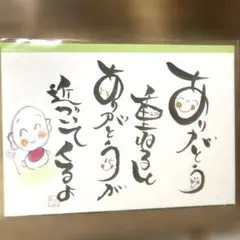 ありがとう
重ねると
ありがとうが
近づいてくるよ